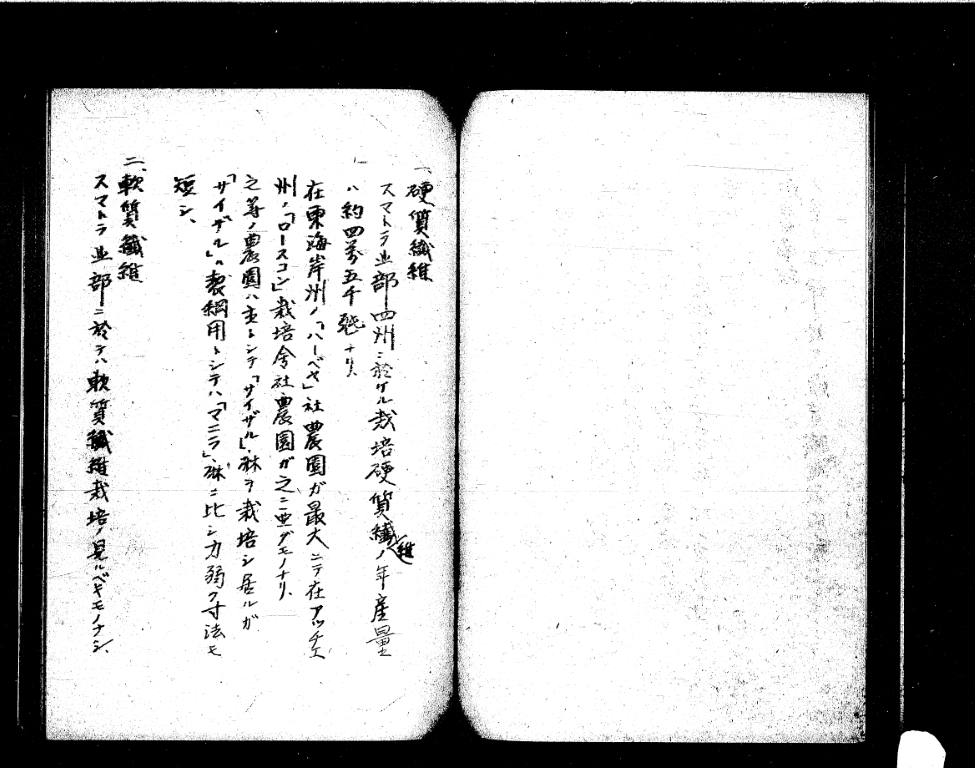 一、硬質纖維
スマトラ北部四州ニ於ケル栽培硬質纖維ノ年産量
ハ約四萬五千瓲ナリ、
在東海岸州ノ「ハーベヤ」社農園ガ最大ニテ在アッチエ
州ノ「ロースコン」栽培會社農園ガ之ニ亜グモノナリ、
之等ノ農園ハ主トシテ「サイザル」麻ヲ栽培シ居ルガ
「サイザル」ハ製綱用トシテハ「マニラ」麻ニ比シ力弱ク寸法モ
短シ、
二、軟質纖維
スマトラ北部ニ於テハ軟質纖維栽培ノ見ルベキモノナシ、